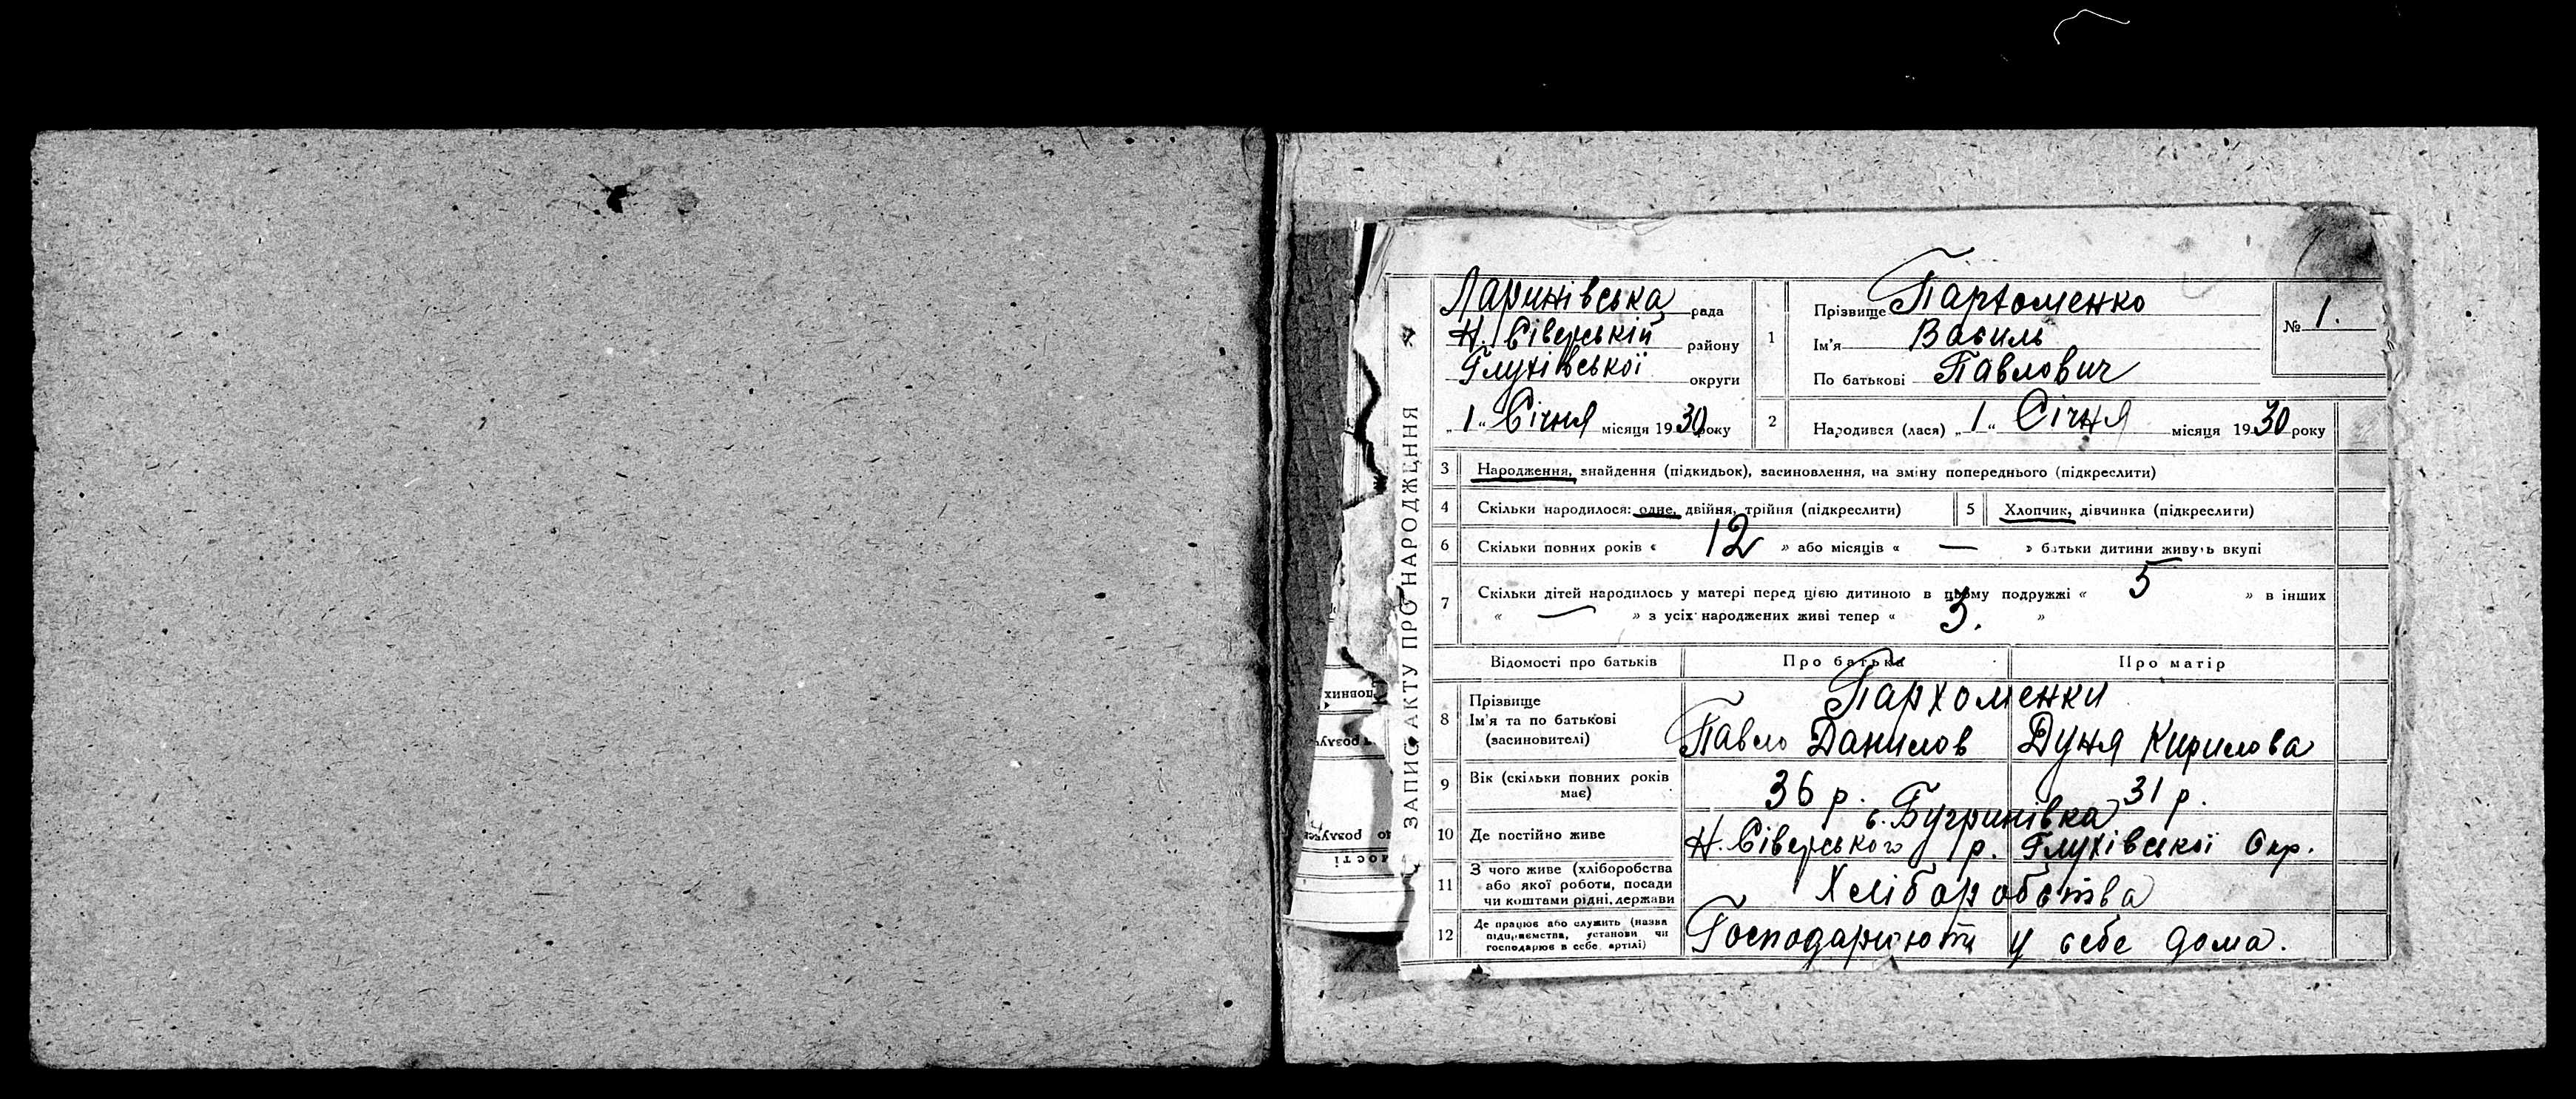 ЗАПИС АКТУ ПРО НАРОДЖЕННЯ
Ларинівська рада
Н. Сіверській району
Глухівської округи
„1“ Січня місяця 1930 року
1
Прізвище Пархоменко
Ім'я Василь
По батькові Павлович
№ 1.
2 Народився (лася) „1“ Січня місяця 1930 року
3 Народження, знайдення (підкидьок), засиновлення, на зміну попереднього (підкреслити)
4 Скільки народилося: одне, двійня, трійня (підкреслити)
5 Хлопчик, дівчинка (підкреслити)
6 Скільки повних років « 12 » або місяців « — » батьки дитини живуть вкупі
7 Скільки дітей народилось у матері перед цією дитиною в цьому подружжі « 5 » в інших
« — » з усіх народжених живі тепер « 3. »
Відомості про батьків Про батька Про матір
8 Прізвище
Ім'я та по батькові
(засиновителі)
Пархоменки
Павло Данилов Дуня Кирилова
9 Вік (скільки повних років
має)
36 р. 31 р.
10 Де постійно живе
с. Бугринівка
Н. Сіверського р. Глухівської Окр.
11 З чого живе (хліборобства
або якої роботи, посади
чи коштами рідні, держави
Хліборобства
12 Де працює або служить (назва
підприємства, установи чи
господарює в себе артілі)
Господарюють у себе дома.
повних